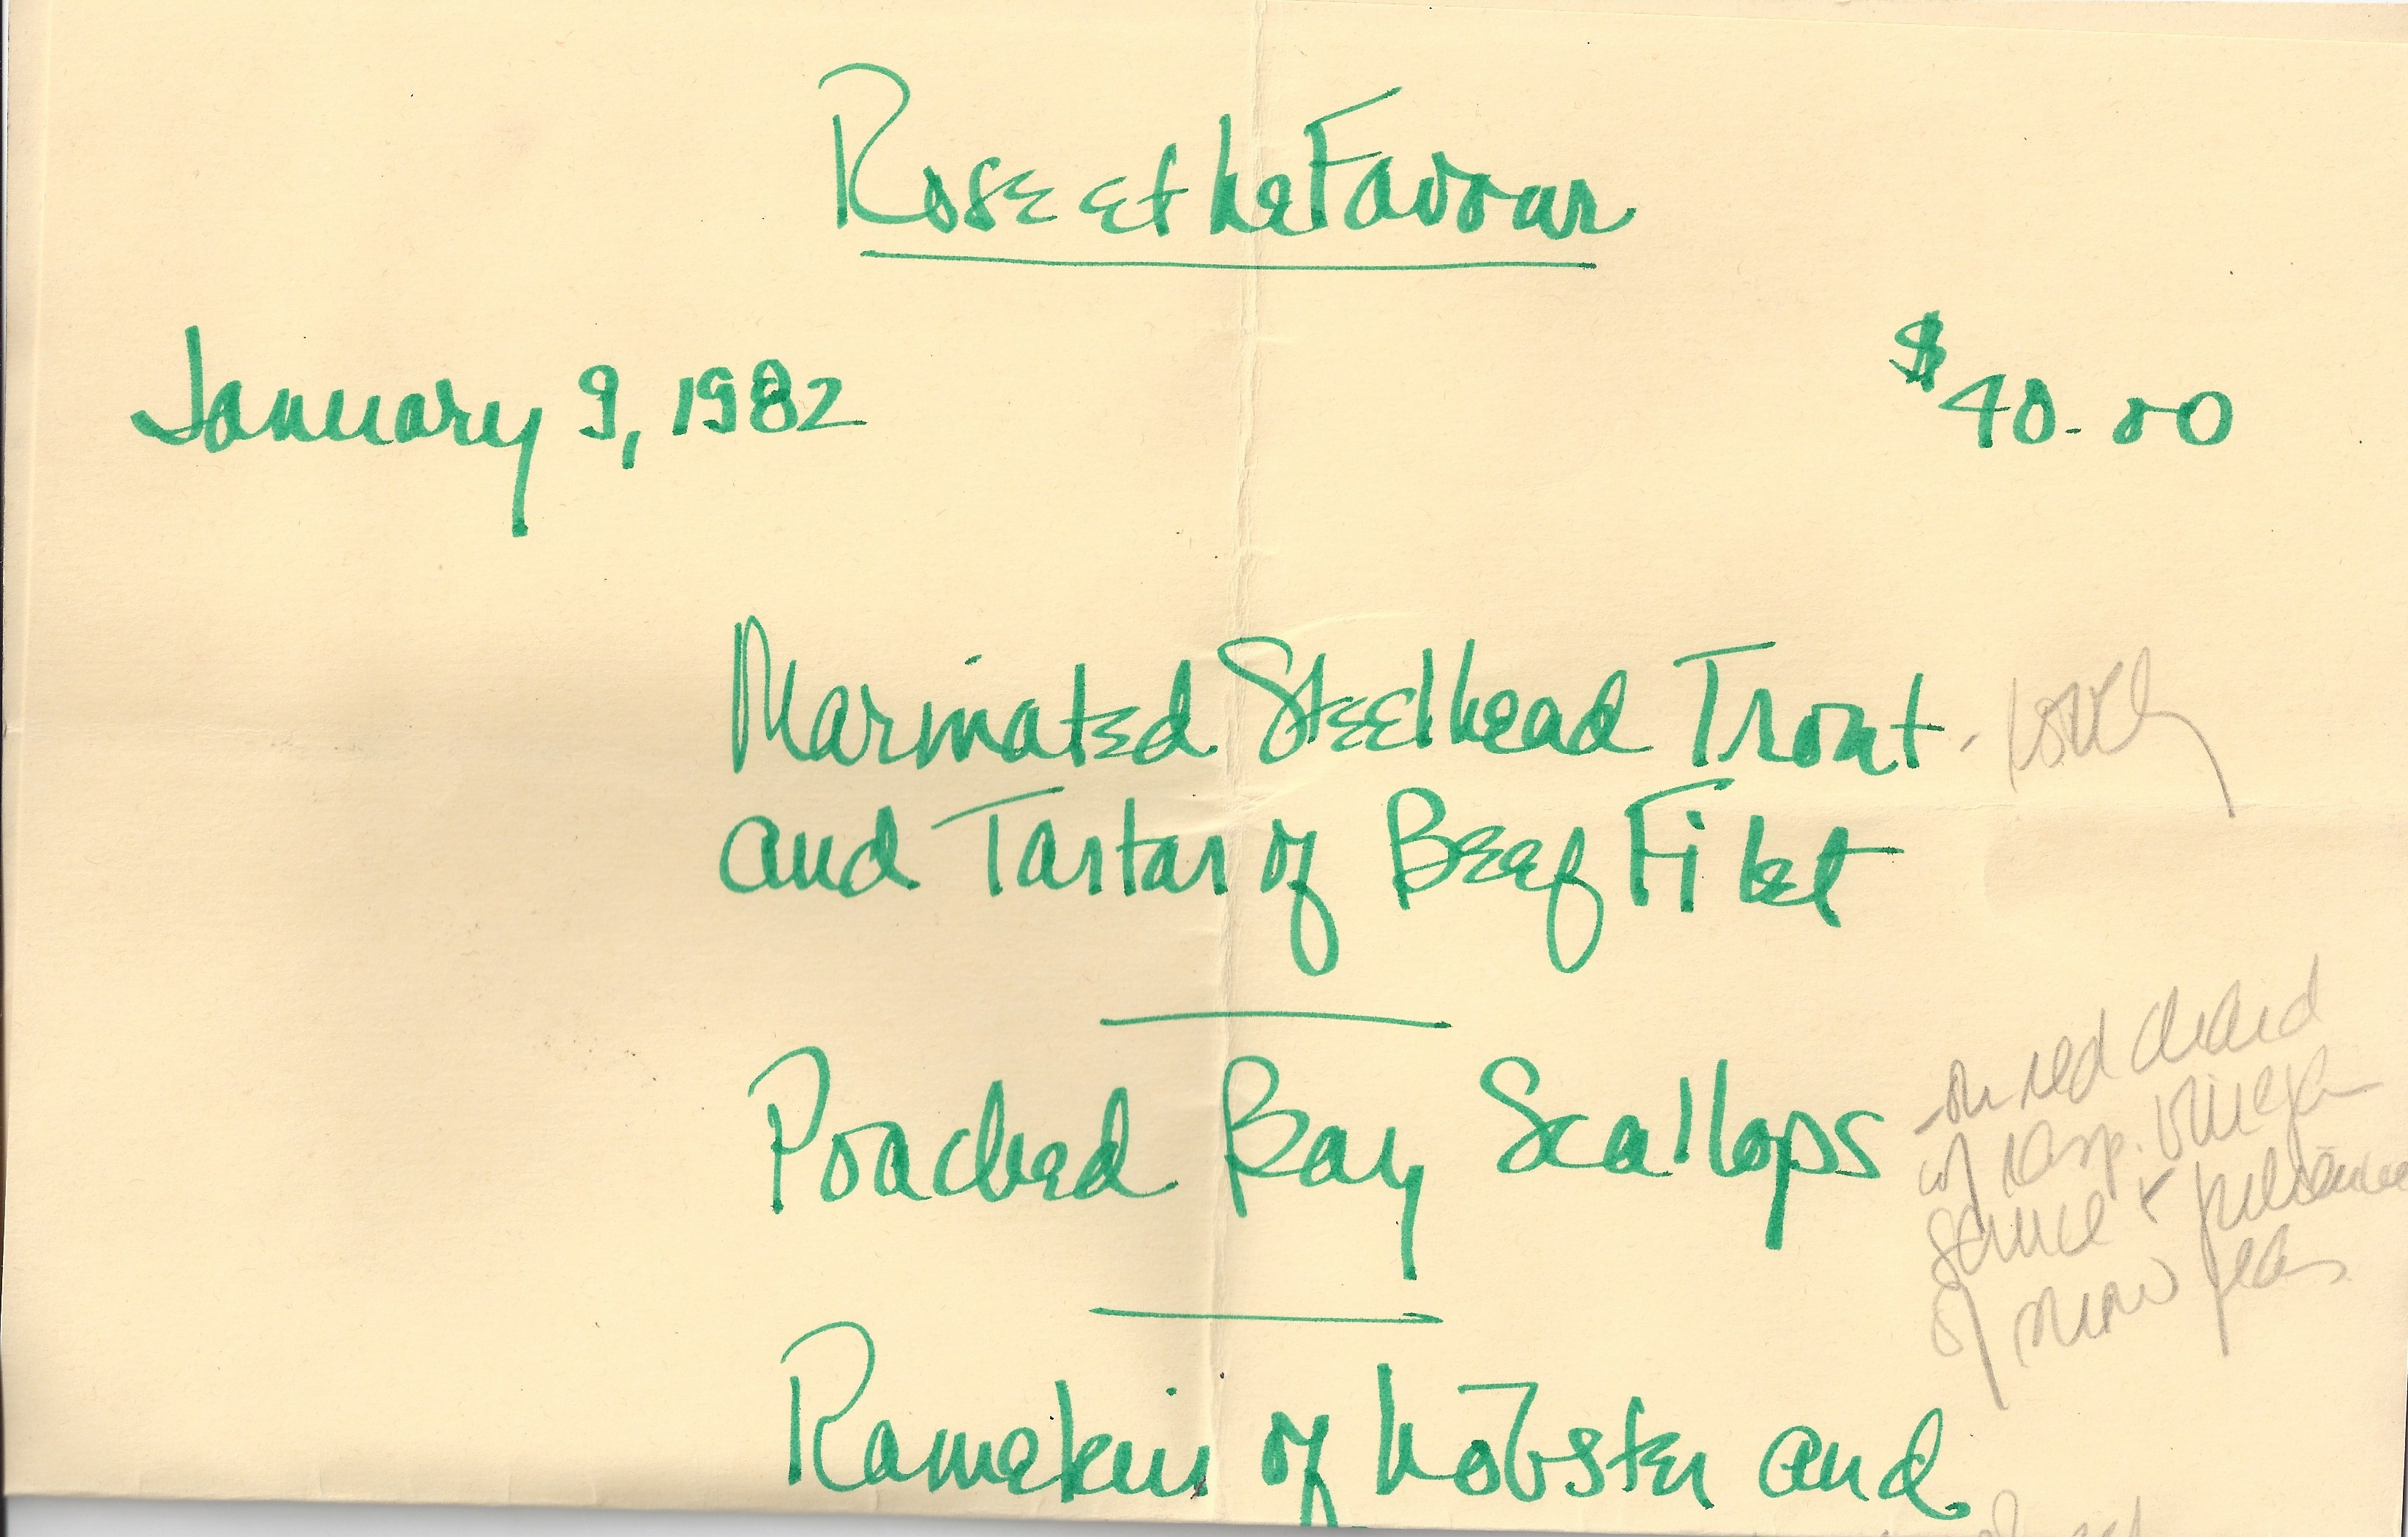 Rose et LeFavour
January 9, 1982
$40.00
Marinated Steelhead Trout - lovely
and Tartar of Beef Filet
Poached Bay Scallops
- on red chard
w/ rasp. vinegar
sauce + julienne
of snow peas
Ramekin of Lobster and